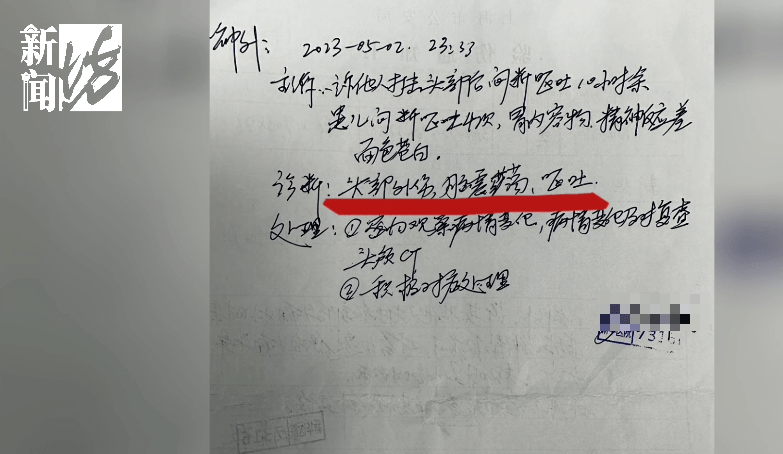 新闻坊
神外: 2023-05-02 23:33
主诉: 诉他人打击头部后间断呕吐10小时余
患儿间断呕吐4次, 胃内容物, 精神反应差
面色苍白.
诊断: 头部外伤, 脑震荡, 呕吐.
处理: ①密切观察病情变化, 病情变化及时复查
头颅CT
②积极对症处理